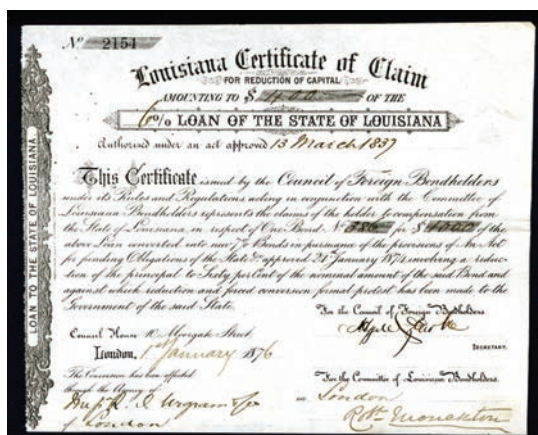 No 2151
Louisiana Certificate of Claim
FOR REDUCTION OF CAPITAL
AMOUNTING TO $ 400 OF THE
6% LOAN OF THE STATE OF LOUISIANA
Authorised under an act approved 13 March 1837
This Certificate issued by the Council of Foreign Bondholders
under its Rules and Regulations acting in conjunction with the Committee of
Louisiana Bondholders represents the claims of the holder to compensation from
the State of Louisiana, in respect of One Bond, No 386 for $ 1000 of the
above Loan converted into new 7% Bonds in pursuance of the provisions of An Act
for funding Obligations of the State &c approved 24th January 1874 involving a reduc-
tion of the principal to Sixty per Cent of the nominal amount of the said Bond and
against which reduction and forced conversion formal protest has been made to the
Government of the said State.
For the Council of Foreign Bondholders
Council House 10 Moorgate Street.
Hyde Clarke
SECRETARY.
London, 1st January 1876
The Conversion has been effected
through the Agency of
For the Committee of Louisiana Bondholders.
London
of London
Robt Monckton
LOAN TO THE STATE OF LOUISIANA